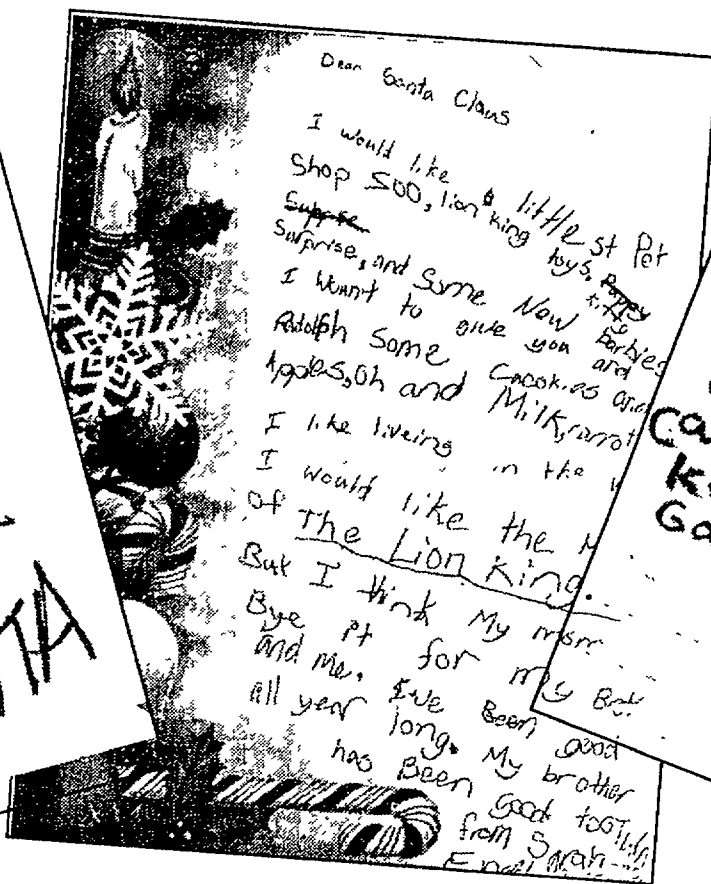 Dear Santa Claus
I would like a littlest Pet
Shop zoo, lion king toys, Puppy
Supprise kitty
Surprise, and Some New barbies
I wannt to give you and
Rudolph Some Cookies and
Apples, oh and Milk, carrot
I like liveing in the
I would like the
of The Lion king.
But I think My mom
Bye it for my
and me. I've Been good
all year long. My brother
has Been good too
from Sarah
TA
Ca
K
Go